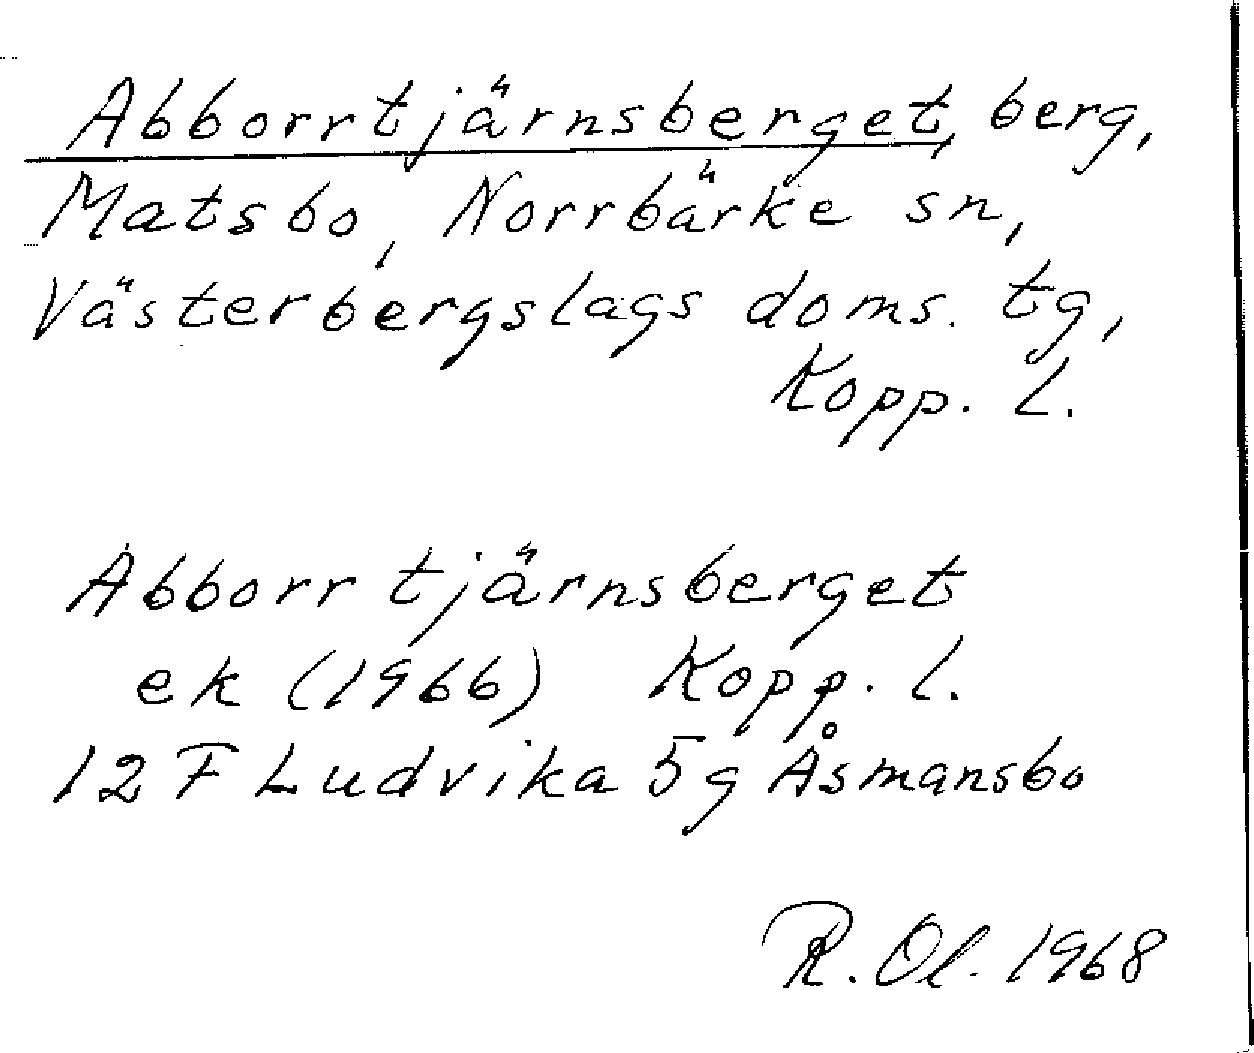 Abborrtjärnsberget, berg,
Matsbo, Norrbärke sn,
Västerbergslags doms. tg,
Kopp. l.
Abborrtjärnsberget
ek (1966) Kopp. l.
12 F Ludvika 5g Åsmansbo
R. Ol. 1968